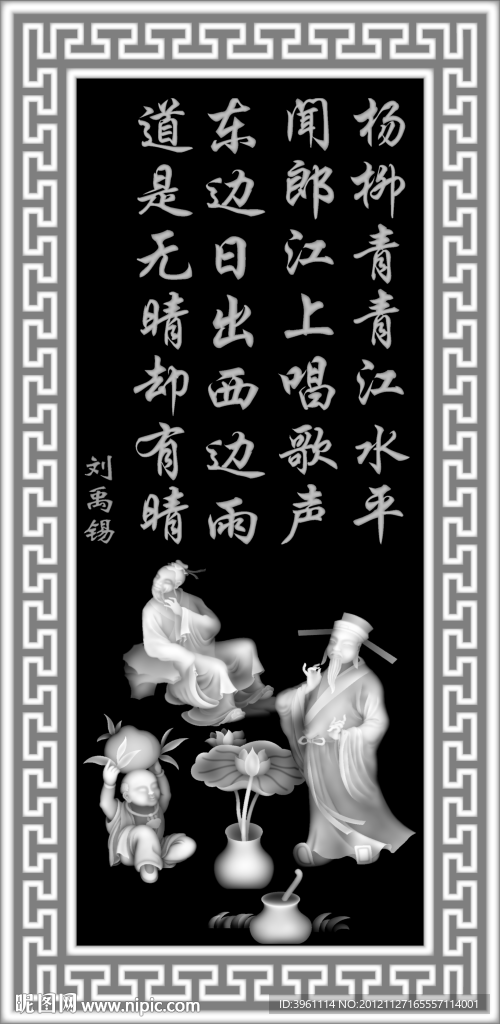 杨柳青青江水平
闻郎江上唱歌声
东边日出西边雨
道是无晴却有晴
刘禹锡
昵图网 www.nipic.com
ID:3961114 NO:20121127165557114001